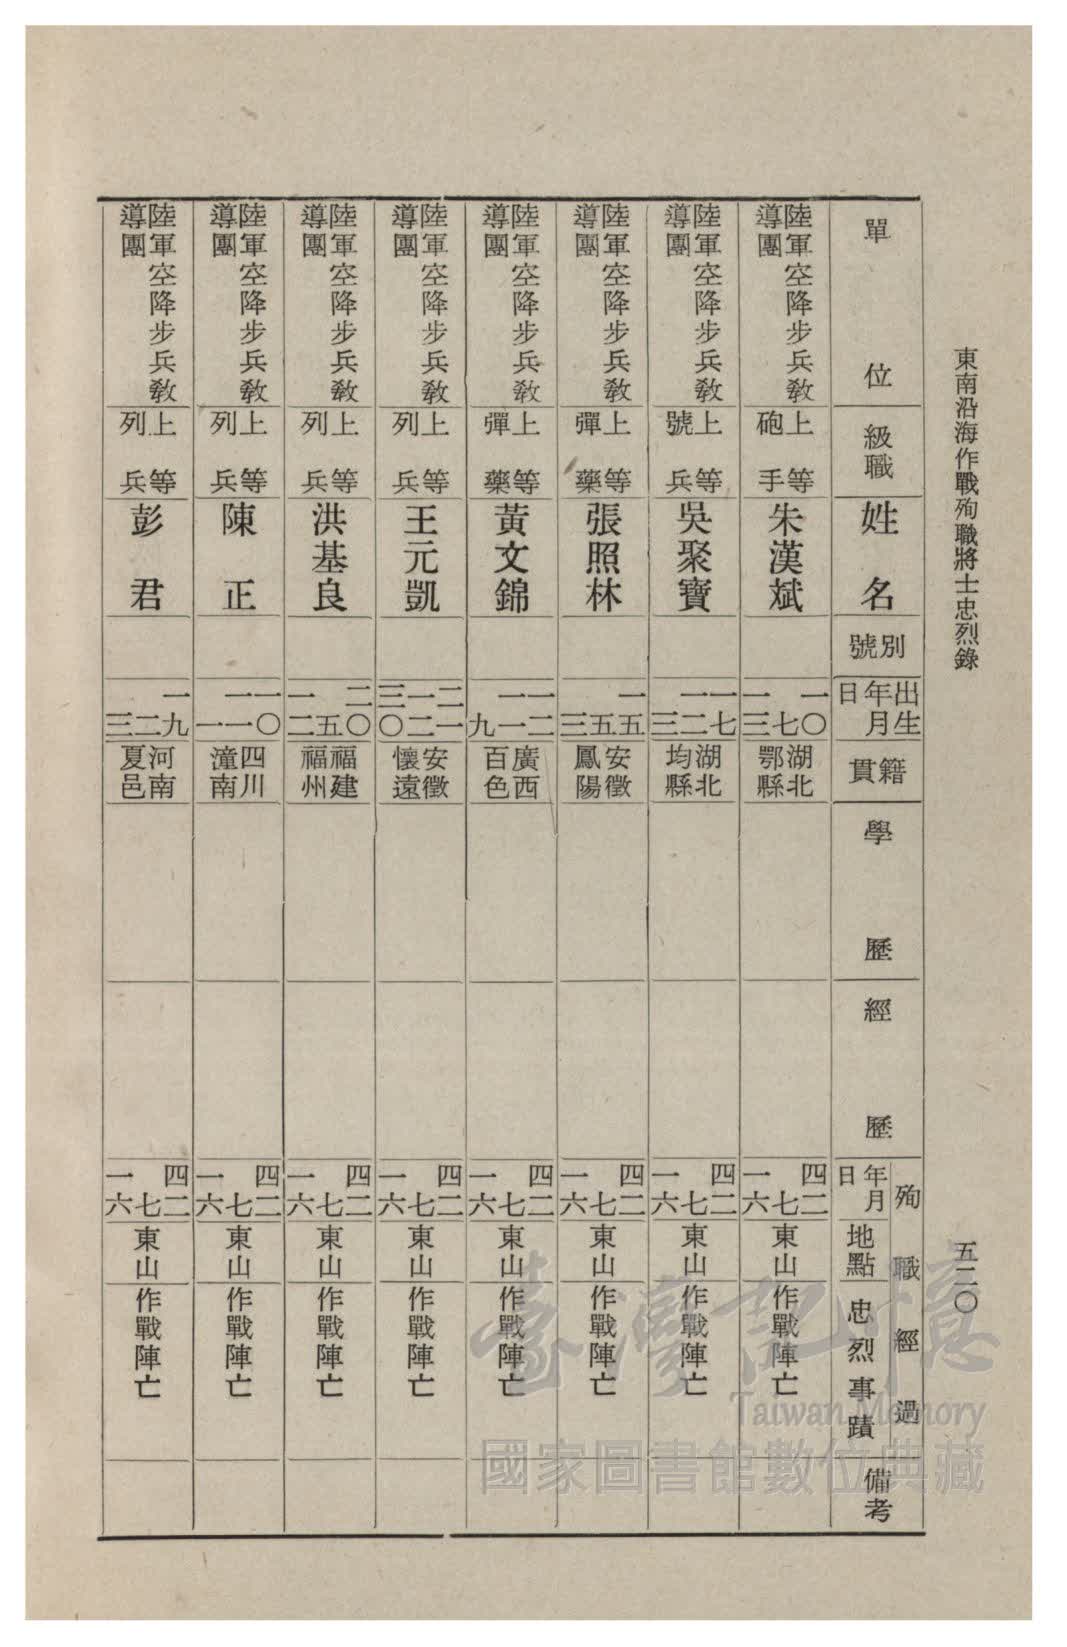 東南沿海作戰殉職將士忠烈錄
五二〇
單位
級職
姓名
別號
出生年月日
籍貫
學歷
經歷
殉職經過
年月日
地點
忠烈事蹟
備考
陸軍空降步兵教導團
上等砲手
朱漢斌
一〇 七 一三
湖北鄂縣
四二 七 一六
東山
作戰陣亡
陸軍空降步兵教導團
上等號兵
吳聚寶
一七 一二 三
湖北均縣
四二 七 一六
東山
作戰陣亡
陸軍空降步兵教導團
上等彈藥
張照林
一五 五 三
安徽鳳陽
四二 七 一六
東山
作戰陣亡
陸軍空降步兵教導團
上等彈藥
黃文錦
一二 一一 九
廣西百色
四二 七 一六
東山
作戰陣亡
陸軍空降步兵教導團
上等列兵
王元凱
二一 一二 三〇
安徽懷遠
四二 七 一六
東山
作戰陣亡
陸軍空降步兵教導團
上等列兵
洪基良
二〇 五 一二
福建福州
四二 七 一六
東山
作戰陣亡
陸軍空降步兵教導團
上等列兵
陳正
一〇 一一 一
四川潼南
四二 七 一六
東山
作戰陣亡
陸軍空降步兵教導團
上等列兵
彭君
一九 二 三
河南夏邑
四二 七 一六
東山
作戰陣亡
臺灣記憶
Taiwan Memory
國家圖書館數位典藏